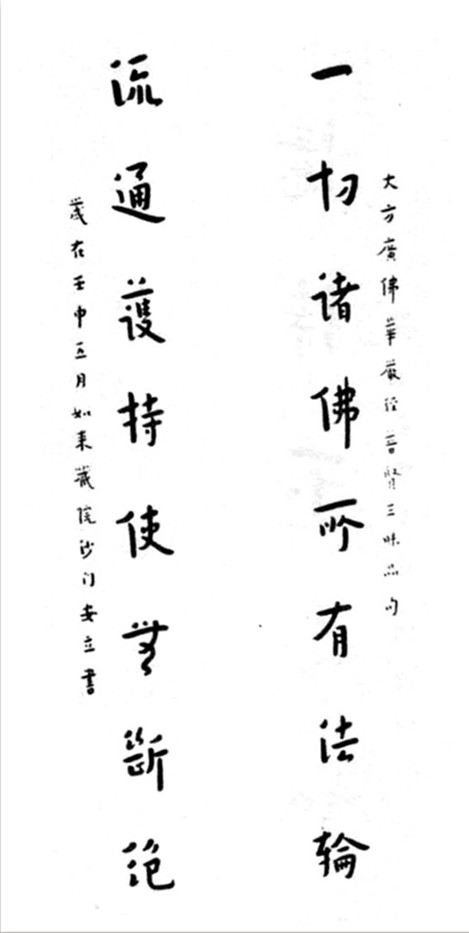 大方廣佛華嚴經普賢三昧品句
一切諸佛所有法輪
流通護持使無斷絕
歲在壬申五月如來藏院沙门安立書